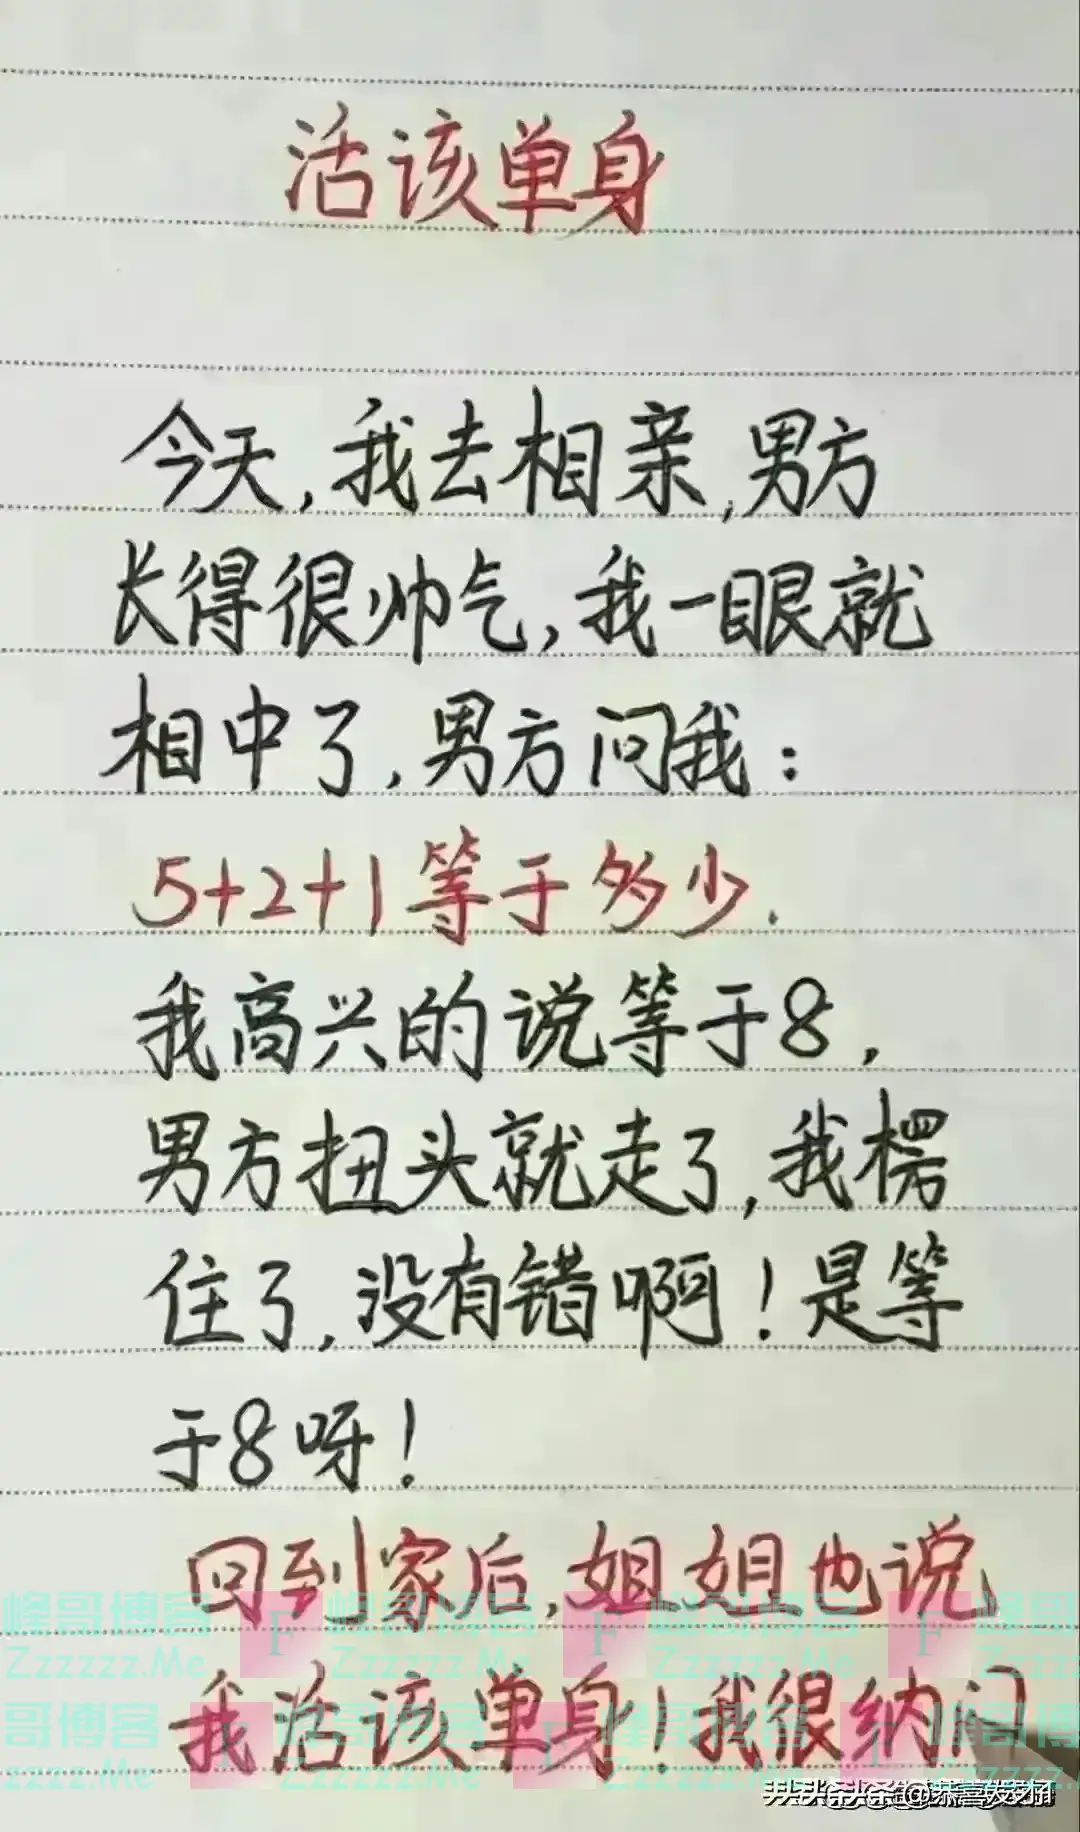 活该单身
今天,我去相亲,男方
长得很帅气,我一眼就
相中了,男方问我:
5+2+1等于多少.
我高兴的说等于8,
男方扭头就走了,我楞
住了,没有错啊!是等
于8呀!
回到家后,姐姐也说
我活该单身!我很纳闷
峰哥博客 F 峰哥博客 F 峰哥博客 F 峰哥
Zzzzzz.Me Zzzzzz.Me Zzzzzz.Me
哥博客 F 峰哥博客 峰哥博客 峰哥博
zzzz.Me Zzzzzz.Me Zzzzzz.Me